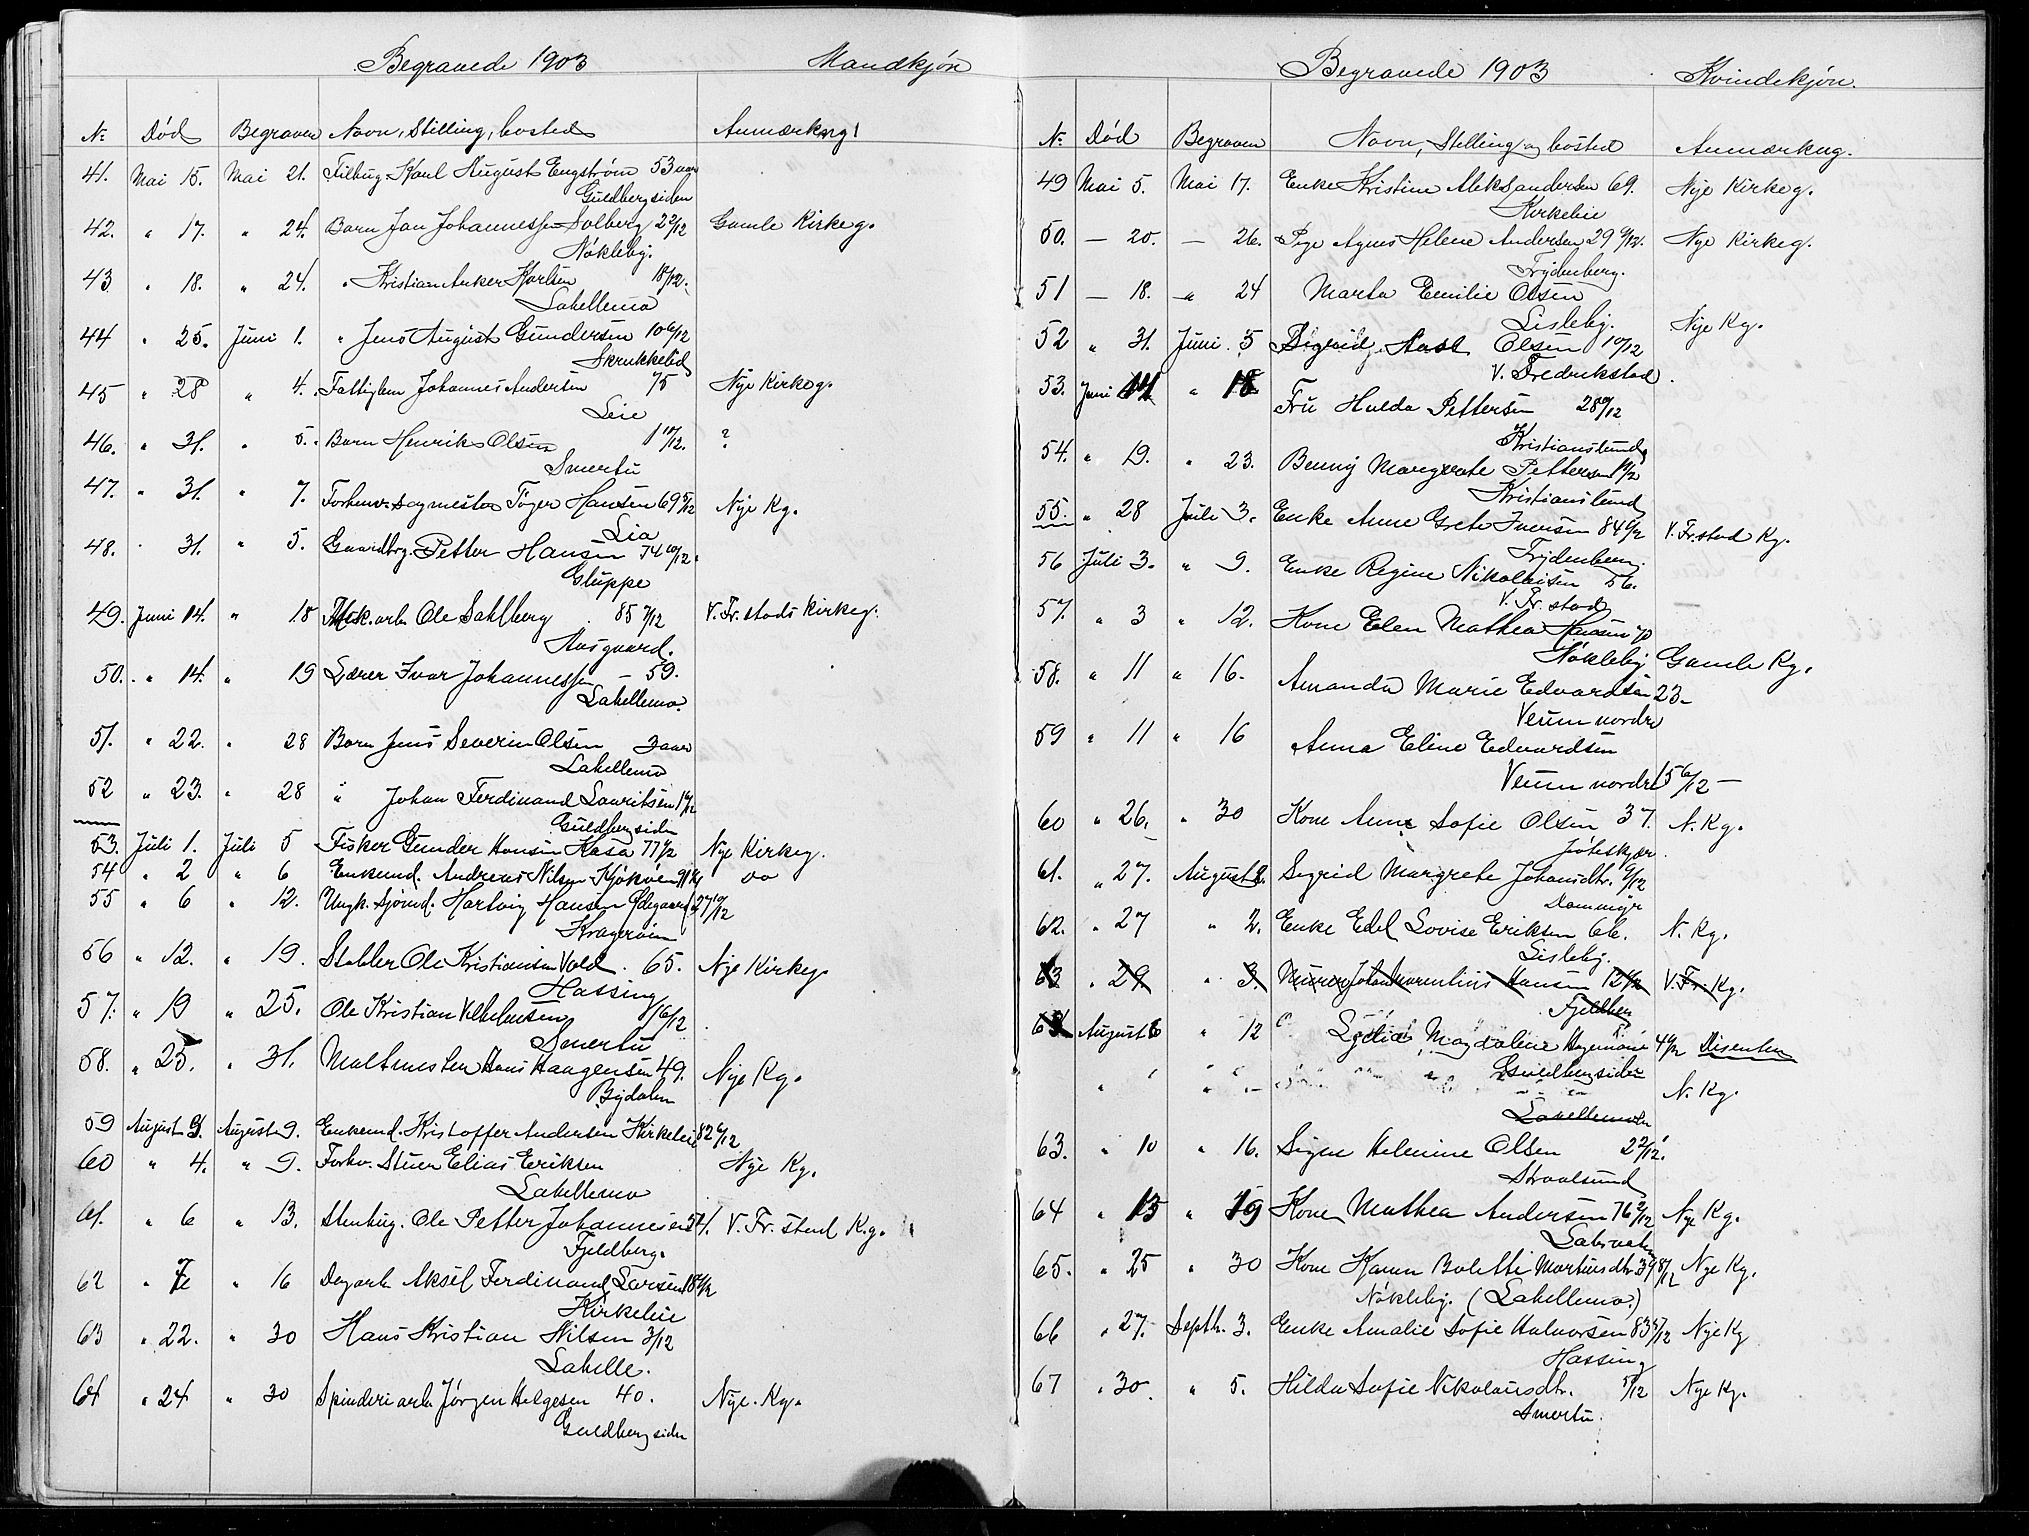 Begravede 1903 Mandkjøn
No Død Begraven Navn, Stilling, bosted Anmærkng
41. Mai 15. Mai 21. Karl August Engström 53 aar
Guldbergsiden
42. " 17. " 24. Barn Jan Johannessen Solberg 2 2/12 Gamle Kirkeg.
Nøkleby.
43 " 18. " 24. " Kristian Anker Karlsen 18/12.
Lahellemo
44 " 25. Juni 1. " Jens August Gundersen 10 6/12
Skrukkelid
45 " 28 " 4. Fattiglem Johannes Andersen 75 Nye Kirkeg.
Leie
46. " 31. " 5. Barn Henrik Olsen 1 10/12. ?
Smertu
47. " 31. " 7. Forhenv. sagmester Tøger Hansen 69 5/12 Nye Kg.
Lia
48. " 31. " 5. Gaardbrg. Petter Hansen 74 10/12.
Gluppe
49. Juni 14. " 18 arb. Ole Sahlberg 85 7/12 V. Fr.stads Kirkeg.
Aasgaard.
50. " 14. " 19 Lærer Ivar Johannessen – 59.
Lahellemo.
51. " 22. " 28 Barn Jens Severin Olsen 3 aar
Lahellemo
52 " 23. " 28 " Johan Ferdinand Lauritsen
Guldbergsiden
53. Juli 1. Juli 5 Fisker Gunder Hansen Kasa Nye Kirkeg.
54 " 2 " 6 Enkemd. Andreas Nilsen Kjøkøen
55 " 6 " 12. Ungk. sjømd. Hartvig Hansen Ødegaard 27 10/12
Kragerøen
56 " 12. " 19. Stabler Ole Kristiansen Vold. 65. Nye Kirkeg.
Hassing
57. " 19 " 25. Ole Kristian Vilhelmsen
Smertu
58. " 25. " 31. Hans Haagensen 49. Nye Kg.
Bydalen
59 August 3. August 9. Enkemd. Kristoffer Andersen Kirkeleie 82 6/12
60 " 4. " 9. Forhv. Stuer Elias Eriksen Nye Kg.
Lahellemo
61. " 6 " 13. Stenhug. Ole Petter Johannesen 54. V. Fr.stad Kg.
Fjeldberg.
62 " " 16 Dagarb. Aksel Ferdinand Larsen
Kirkeleie
63 " 22. " 30 Hans Kristian Nilsen 3/12
Lahelle.
64 " 24 " 30 Spinderiarb. Jørgen Helgesen 40. Nye. Kg.
Guldbergsiden
Begravede 1903 Kvindekjøn.
No Død Begraven Navn, Stilling og bosted Anmærkng.
49 Mai 5. Mai 17. Enke Kristine Aleksandersen 69. Nye Kirkeg.
Kirkeleie
50. — 20. — 26. Pige Agnes Helene Andersen 29 9/12. Nye Kirkeg.
Frydenberg.
51 — 18. — 24 Marta Emilie Olsen
Lisleby. Nye Kg.
52 " 31. Juni 5 Olsen 10/12
V. Fredrikstad.
53. Juni 14 " 18 Fru Hulda Pettersen 28 9/12
Kristianslund
54. " 19. " 23. Benny Margrete Pettersen
Kristianslund
55. " 28 Juli 3. Enke Anne Grete Iversen 84 V. Fr.stad Kg.
Frydenberg.
56 Juli 3. " 9. Enke Regine Nikolaisen 56.
V. Fr. stad
57. " 3 " 12. Kone Elen Mathea Hansen 70
Nøkleby Gamle Kg.
58. " 11 " 16. Amanda Marie Edvardsen 23–
Veum nordre
59 " 11 " 16 Anna Eline Edvardsen
Veum nordre 15 6/12 –
60 " 26. " 30 Kone Anna Sofie Olsen 37. N. Kg.
61. " 27. August 2. Sigrid Margrete Johansdtr. 9/12
Dammyr
62. " 27 " 2. Enke Edel Lovise Eriksen 66. N. Kg.
Lisleby.
63 " 29 " 3. Murer Johan Laurentius Hansen V. Fr. Kg.
Fjeldberg
August 6 " 12 Lydia Magdalene Disenter
Guldbergsiden
N. Kg.
Lahellemoen
63. " 10 " 16. Signe Helmine Olsen 2 2/12.
Stralsund
64 " 13 " 19 Kone Mathea Andersen 76 2/12 Nye Kg.
65. " 25 " 30 Kone Karen Boletti Martinsdtr. 39 8/12 Nye Kg.
Nøkleby. (Lahellemo.)
66 " 27. Septb. 3. Enke Amalie Sofie Halvorsen 83 5/12 Nye Kg
Hassing
67 " 30. " 5. Hilda Sofie Nikolaisdtr. 5/12 Nye Kg.
Smertu.